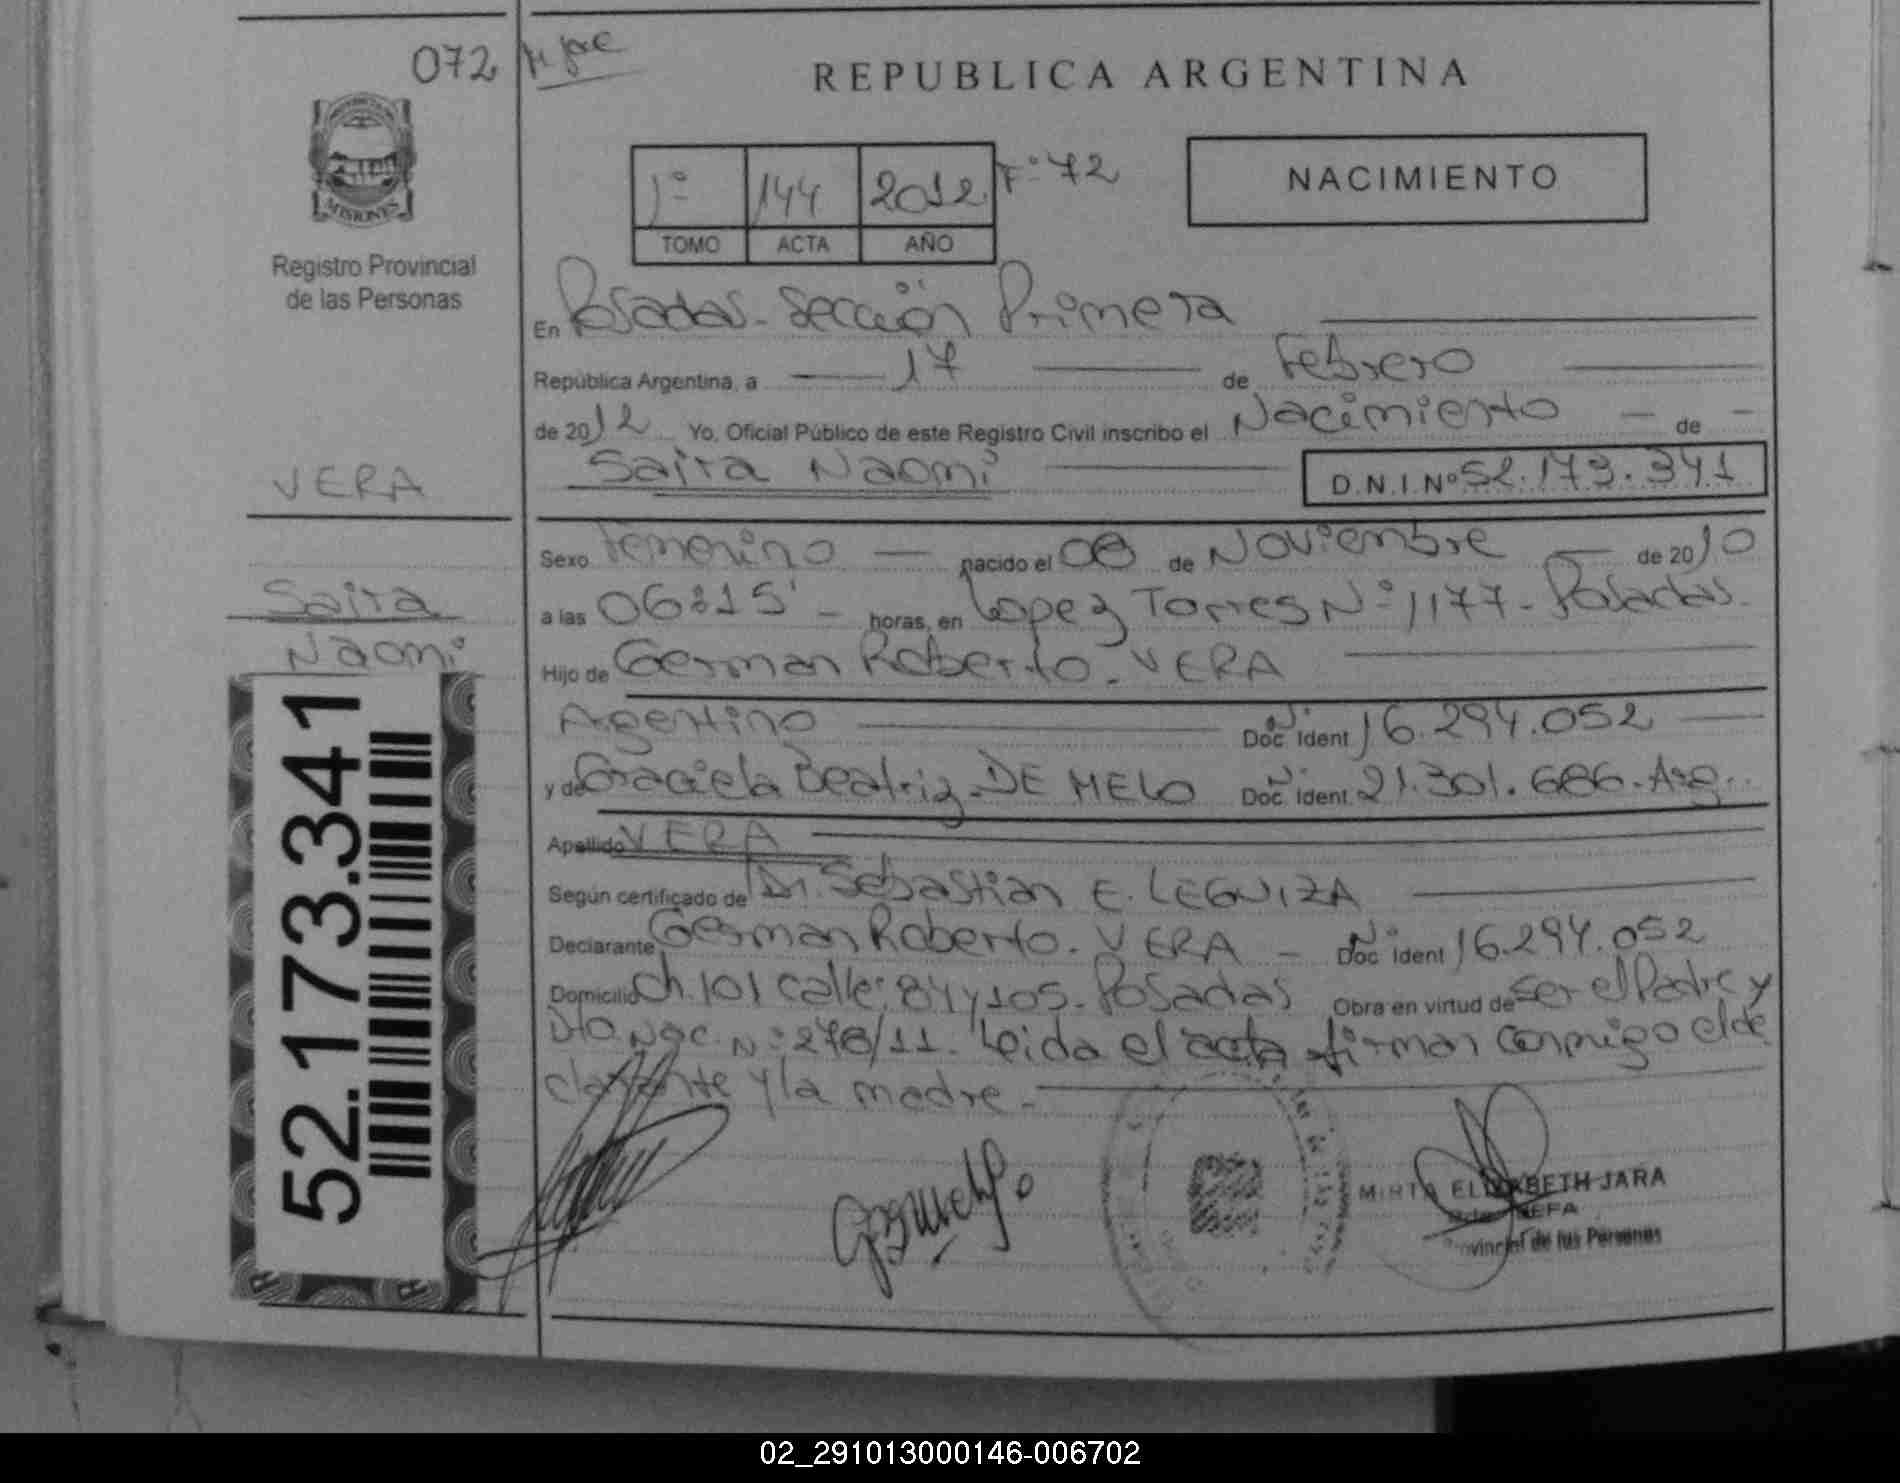 072
REPUBLICA ARGENTINA
1º 144 2012 Fº 72
TOMO ACTA AÑO
NACIMIENTO
MISIONES
Registro Provincial
de las Personas
En Posadas - Sección Primera
República Argentina, a 17 de Febrero
de 2012 Yo, Oficial Público de este Registro Civil inscribo el Nacimiento - de -
Saira Naomi D.N.I.Nº 52.173.341
VERA
Saira
Naomi
52.173.341
Sexo Femenino nacido el 08 de Noviembre de 2010
a las 06:15' - horas, en Lopez Torres Nº 1177 - Posadas.
Hijo de German Roberto. VERA
Argentino Doc. Nº Ident 16.294.052
y de Graciela Beatriz. DE MELO Doc. Nº Ident. 21.301.686. Arg.
Apellido VERA
Según certificado de Dr. Sebastian E. LEGUIZA
Declarante German Roberto. VERA - Doc. Nº Ident 16.294.052
Domicilio Ch. 101 calle: 84 y 105. Posadas Obra en virtud de ser el Padre y
Dto. Nac. Nº: 278/11. Leida el acta firman conmigo el de
clarante y la madre.
MIRTA ELIZABETH JARA
JEFA
Provincial de las Personas
02_291013000146-006702